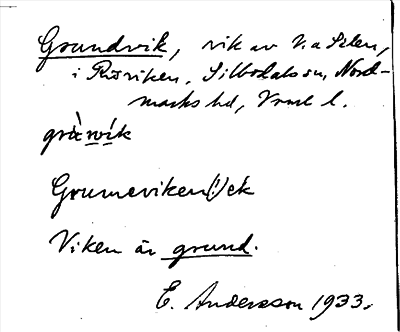 Grundvik, vik av V.a Silen,
i Rösviken, Silbodals sn, Nord-
marks hd, Vrml l.
grùnvík
Grumeviken(!) ek
Viken är grund.
E. Andersson 1933.